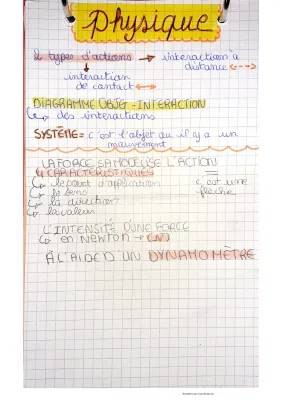 Physique
2 types d'actions → interaction à distance
↓
interaction de contact
DIAGRAMME OBJET - INTERACTION
↳ des interactions
SYSTÈME = c'est l'objet qu il y a un mouvement
LA FORCE SA MODELISE L'ACTION
4 CARACTÉRISTIQUES =
↳ le point d'application c'est une flèche
↳ le sens
↳ la direction
↳ la valeur
L'INTENSITÉ D'UNE FORCE
↳ en Newton → (N)
À L'AIDE D UN DYNAMOMÈTRE